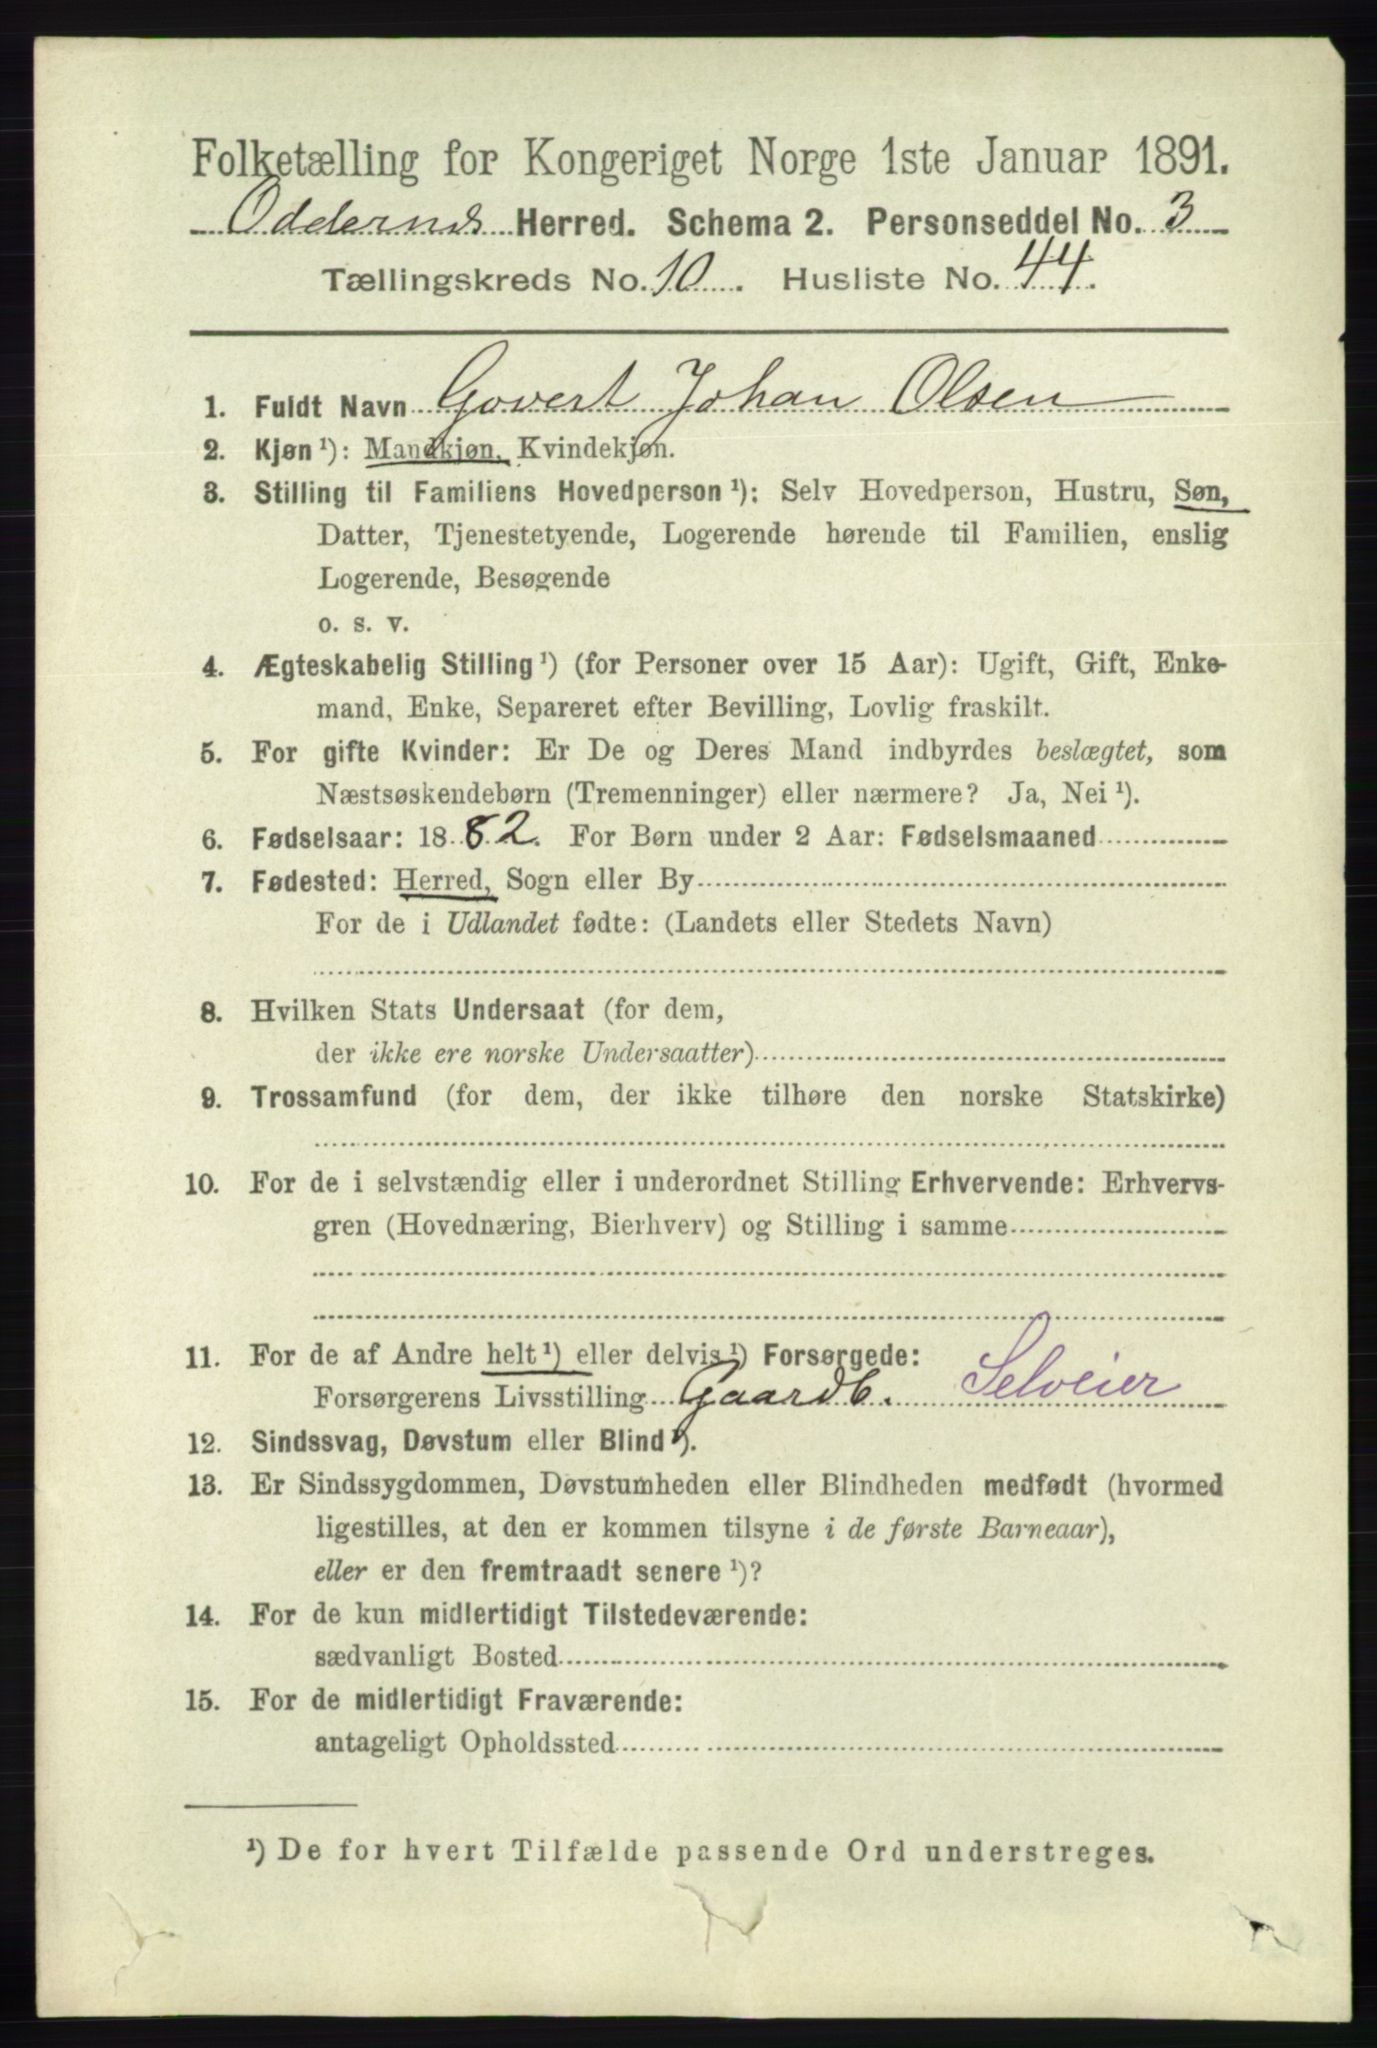 Folketælling for Kongeriget Norge 1ste Januar 1891.
Oddernes Herred. Schema 2. Personseddel No. 3
Tællingskreds No. 10. Husliste No. 44.
1. Fuldt Navn Govert Johan Olsen
2. Kjøn ¹): Mandkjøn, Kvindekjøn.
3. Stilling til Familiens Hovedperson ¹): Selv Hovedperson, Hustru, Søn,
Datter, Tjenestetyende, Logerende hørende til Familien, enslig
Logerende, Besøgende
o. s. v.
4. Ægteskabelig Stilling ¹) (for Personer over 15 Aar): Ugift, Gift, Enke-
mand, Enke, Separeret efter Bevilling, Lovlig fraskilt.
5. For gifte Kvinder: Er De og Deres Mand indbyrdes beslægtet, som
Næstsøskendebørn (Tremenninger) eller nærmere? Ja, Nei ¹).
6. Fødselsaar: 1882. For Børn under 2 Aar: Fødselsmaaned
7. Fødested: Herred, Sogn eller By
For de i Udlandet fødte: (Landets eller Stedets Navn)
8. Hvilken Stats Undersaat (for dem,
der ikke ere norske Undersaatter)
9. Trossamfund (for dem, der ikke tilhøre den norske Statskirke)
10. For de i selvstændig eller i underordnet Stilling Erhvervende: Erhvervs-
gren (Hovednæring, Bierhverv) og Stilling i samme
11. For de af Andre helt ¹) eller delvis ¹) Forsørgede:
Forsørgerens Livsstilling Gaardb. Selveier
12. Sindssvag, Døvstum eller Blind ¹).
13. Er Sindssygdommen, Døvstumheden eller Blindheden medfødt (hvormed
ligestilles, at den er kommen tilsyne i de første Barneaar),
eller er den fremtraadt senere ¹)?
14. For de kun midlertidigt Tilstedeværende:
sædvanligt Bosted
15. For de midlertidigt Fraværende:
antageligt Opholdssted
¹) De for hvert Tilfælde passende Ord understreges.